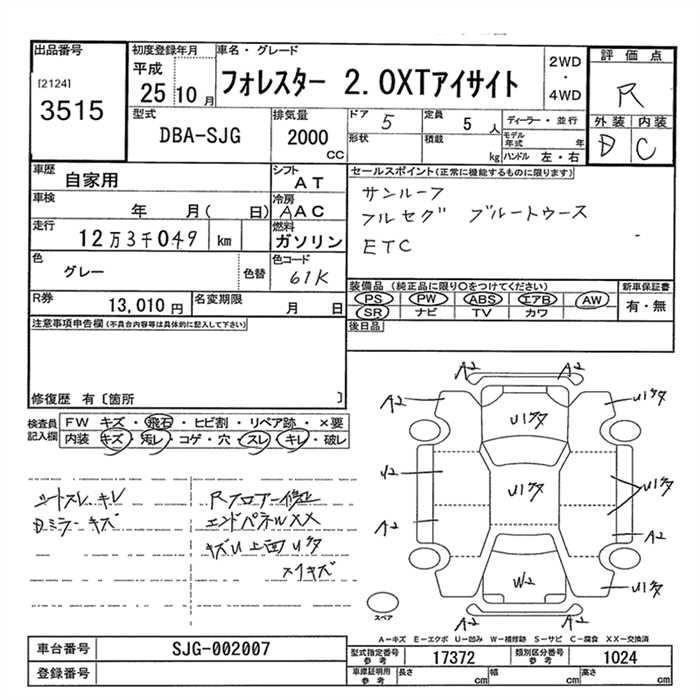 出品番号
[2124]
3515
初度登録年月
平成
25 10 月
車名・グレード
フォレスター 2.0XTアイサイト
2WD
・
4WD
評価点
R
外装 内装
D C
型式
DBA-SJG
排気量
2000
cc
ドア 5
形状
定員 5 人
積載 kg
ディーラー・並行
モデル年式 年
ハンドル 左・右
車歴
自家用
シフト
AT
車検
年 月( 日)
冷房
AAC
走行
12万3千049 km
燃料
ガソリン
色
グレー
色替
色コード
61K
R券
13,010円
名変期限
月 日
セールスポイント(正常に機能するものに限ります)
サンルーフ
フルセグ ブルートゥース
ETC
装備品(純正品に限り○をつけてください)
PS PW ABS エアB AW
SR ナビ TV カワ
新車保証書
有・無
後日品
注意事項申告欄(不具合内容等は具体的に記入して下さい)
修復歴 有〔箇所 〕
検査員
記入欄
FW キズ・飛石・ヒビ割・リペア跡・×要
内装 キズ・汚レ・コゲ・穴・スレ・キレ・破レ
シートスレ キレ
Dミラーキズ
Rフロアー修正
エンドパネルXX
キズU 上面Uキズ
A2 A2
A2 U1キズ
U1キズ
U2 U1キズ U1キズ
A2 A2
W2 U1キズ
A2 A2
スペア
A-キズ E-エクボ U-凹み W-補修跡 S-サビ C-腐食 XX-交換済
車台番号 SJG-002007
登録番号
型式指定番号
参考
17372
類別区分番号
参考
1024
車庫証明用
参考
長さ cm 幅 cm 高さ cm